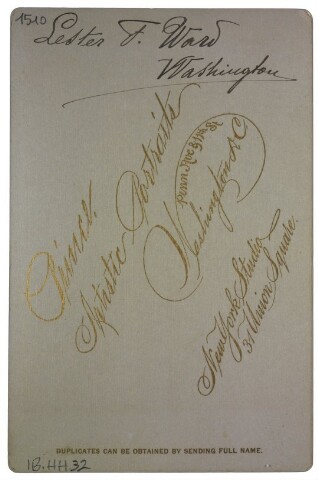 1510
Lester F. Ward
Washington
Prince.
Artistic Portraits
Penn Ave & 11th St
Washington D C
New York Studio
31 Union Square.
DUPLICATES CAN BE OBTAINED BY SENDING FULL NAME.
1B.HH32